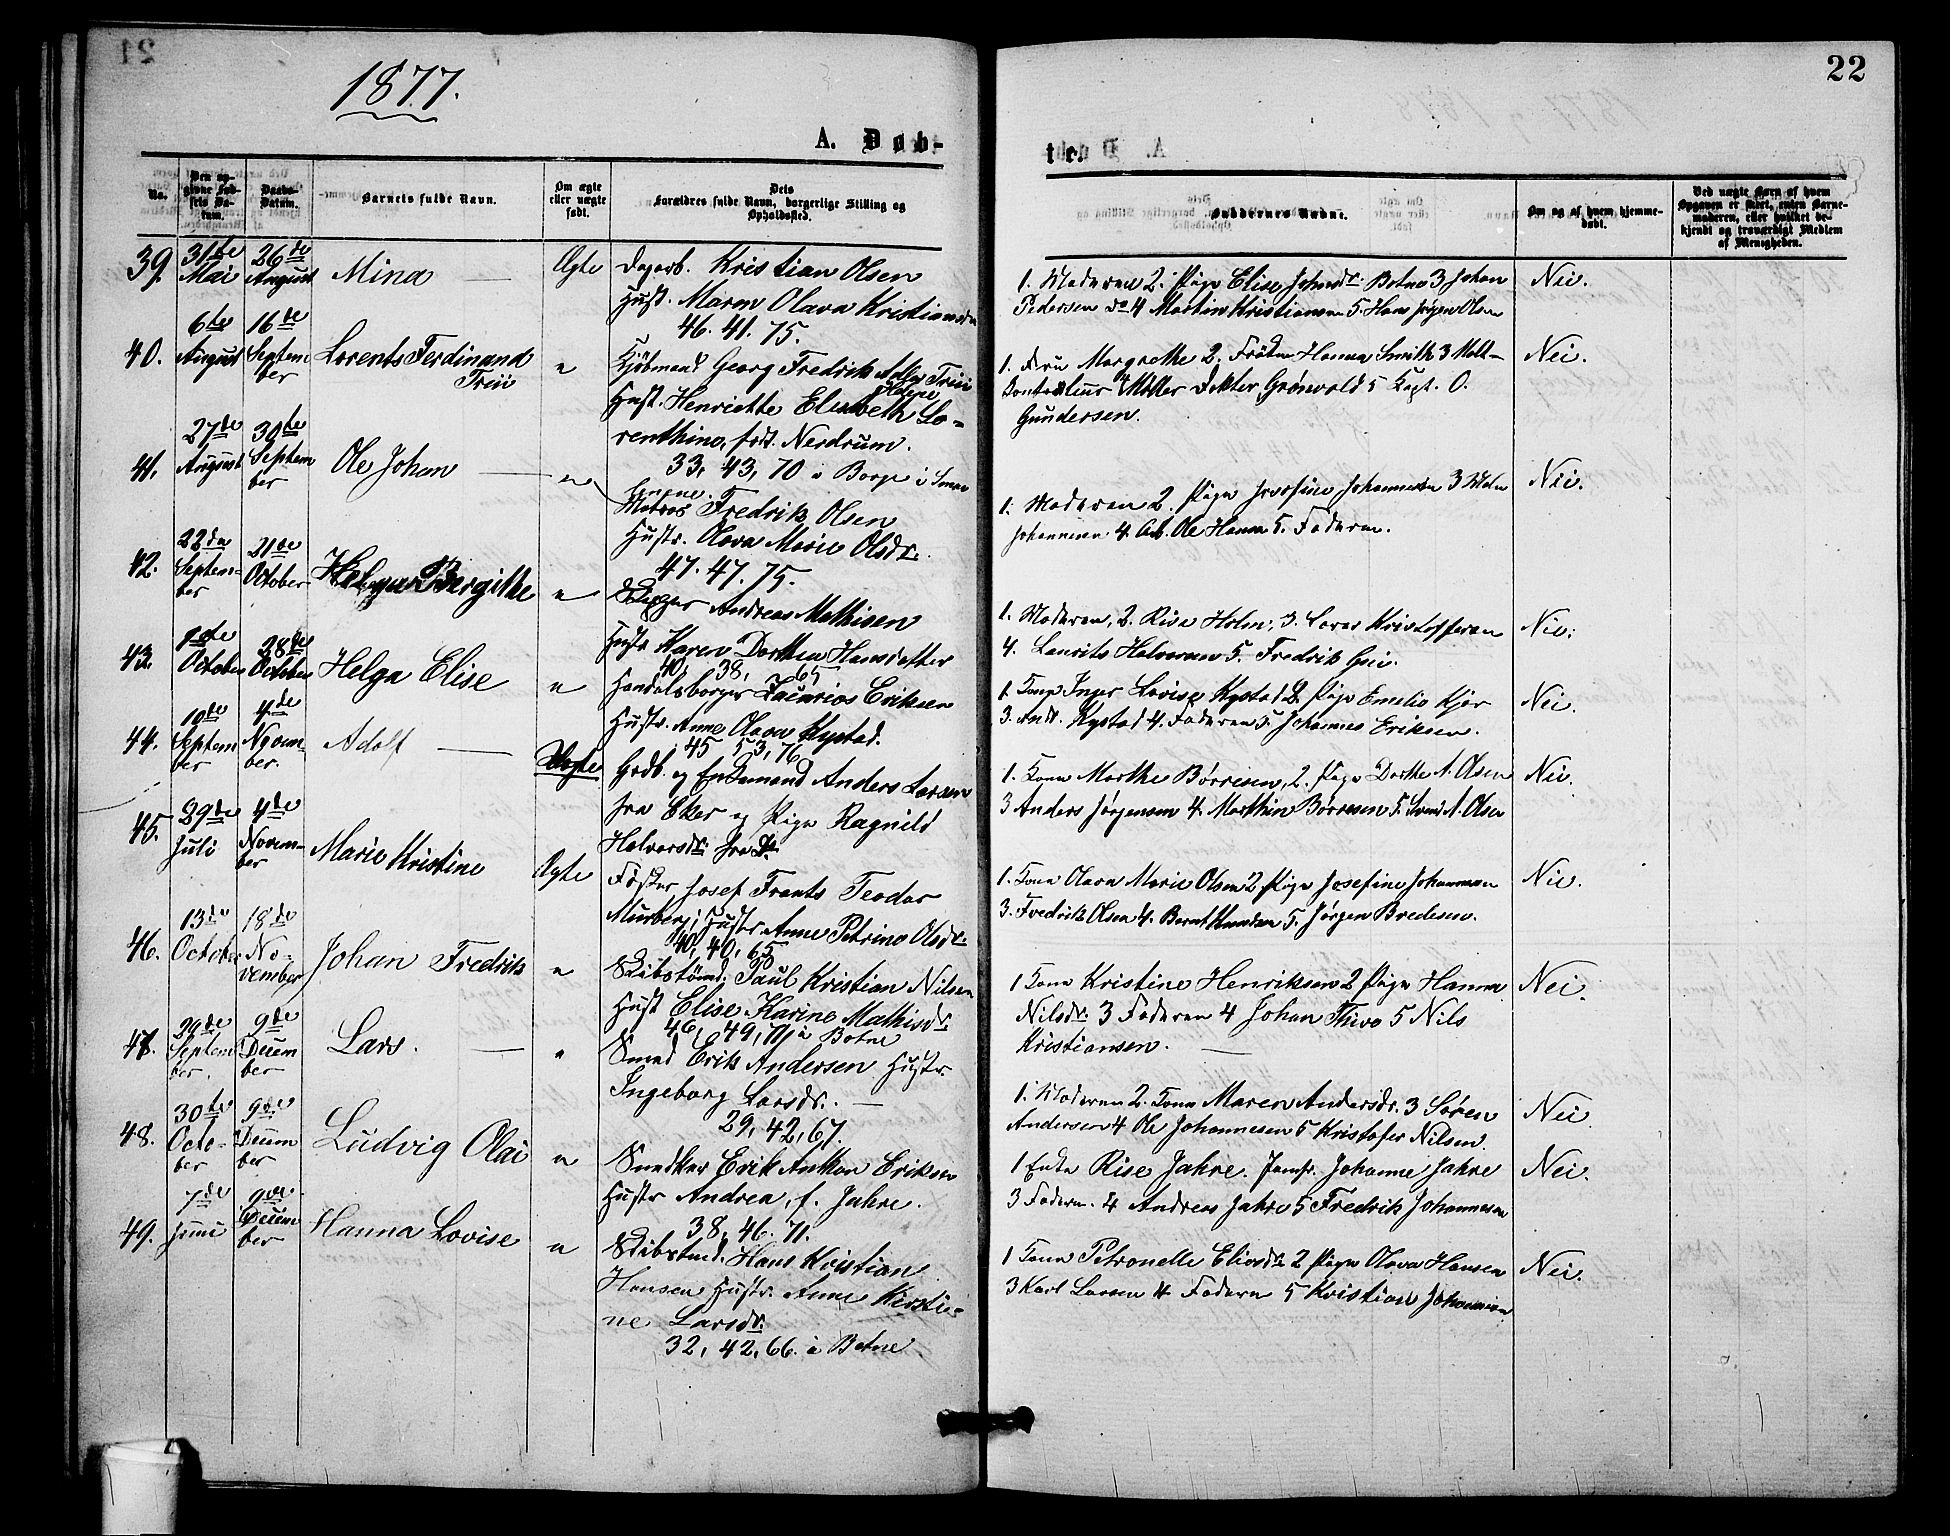 1877.
A. Døb-
No.
Den opgivne Fødsels Datum.
Daabs-Datum.
Barnets fulde Navn.
Om ægte eller uægte født.
Dets Forældres fulde Navn, borgerlige Stilling og Opholdssted.
39. 31te Mai 26de August Mina — Ægte
Dagarb. Kristian Olsen
Hust. Maren Olava Kristiansdr
46. 41. 75.
40. 6te August 16de September Lorents Ferdinand Trii "
Kjöbmand Georg Fredrik Adler Trii
Hust. Henriette Elisabeth Lo-
renthine, født Nesdrum.
33, 43, 70 i Borge i
41. 27de August 30te September Ole Johan — "
Matros Fredrik Olsen
Hustr. Olava Marie Olsdr.
47. 47. 75.
42. 22de September 21de October Helga Bergithe "
Skipper Andreas Mathisen
Hustr Karen Dorthea Hansdatter
40, 38, 65
43. October 28de October Helga Elise "
Handelsborger Zacarias Eriksen
Hustr. Anne Olava Kystad.
45 53, 76
44. 10de September 4de November Adolf — Uægte
Grdb. og Enkemand Anders Larsen
fra Eker og Pige Ragnild
Halvorsdr. fra Do
45. 29de Juli 4de November Marie Kristine Ægte
Fisker Josef Frants Teodor
Murberg; Hustr. Anne Petrine Olsdr.
40, 40, 65
46. 13de October 18de November Johan Fredrik "
Skibstømd. Paul Kristian Nilsen
Hust Elise Karine Mathisdr.
46, 49, 71 i Botne
47. 29de September 9de December Lars. — "
Smed Erik Andersen Hustr.
Ingeborg Larsdr. —
29, 42, 67.
48. 30te October 9de December Ludvig Olai "
Snedker Erik Anthon Eriksen
Hustr Andrea, f. Jahre.
38, 46. 71.
49. 7de Juni 9de December Hanna Lovise "
Skibstmd. Hans Kristian
Hansen Hustr. Anne Kirsti-
ne Larsdr.
32, 42, 66. i Botne
22
te.
Faddernes Navne.
Om og af hvem hjemmedøbt.
Ved uægte Børn af hvem Opgaven er skeet, enten Barnemoderen, eller hvilket bekjendt og troværdigt Medlem af Menigheden.
1. Moderen 2. Pige Elise Johnsdr. Botne 3, Johan Nei.
Pedersen do 4 Martin Kristiansen 5. Hans Jørgen Olsen
1. Fru Margrethe 2. Frøken Hanna Smith 3 Nei.
4 Møller Dokter Grønvold 5 Kapt. O.
Gundersen.
1. Moderen 2. Pige Josefine Johannesen 3 Nei.
Johannesen 4. Arb. Ole Hansen 5. Faderen.
1. Moderen, 2. Rise Holm, 3. Lars Kristoffersen Nei.
4. Laurits Halvorsen 5. Fredrik
1. Jomf Inger Lovise Kystad 2. Pige Emelie Kjær Nei.
3. Andr. Kystad 4. Faderen 5. Johannes Eriksen.
1. Kone Marthe Børresen, 2. Pige Dorthe A. Olsen Nei.
3 Anders Jørgensen 4. Marthin Børresen 5. Svend A. Olsen
1. Kone Olava Marie Olsen 2. Pige Josefine Johannesen Nei.
3. Fredrik Olsen 4. Bernt Knudsen 5. Jørgen Bredesen.
1 Kone Kristine Henriksen 2 Pige Hanna Nei.
Nilsdr. 3 Faderen 4 Johan Thive 5 Nils
Kristiansen. —
1. Moderen 2. Kone Maren Andersdr. 3 Søren Nei
Andersen 4 Ole Johannesen 5 Kristofer Nilsen
1 Enke Rise Jahre. Jomfr. Johanne Jahre Nei.
3 Faderen. 4 Andreas Jahre 5 Fredrik Johannesen
1 Kone Petronelle Eliasdr. 2 Pige Olava Hansen Nei.
3 Karl Larsen 4 Faderen 5 Kristian Johannesen